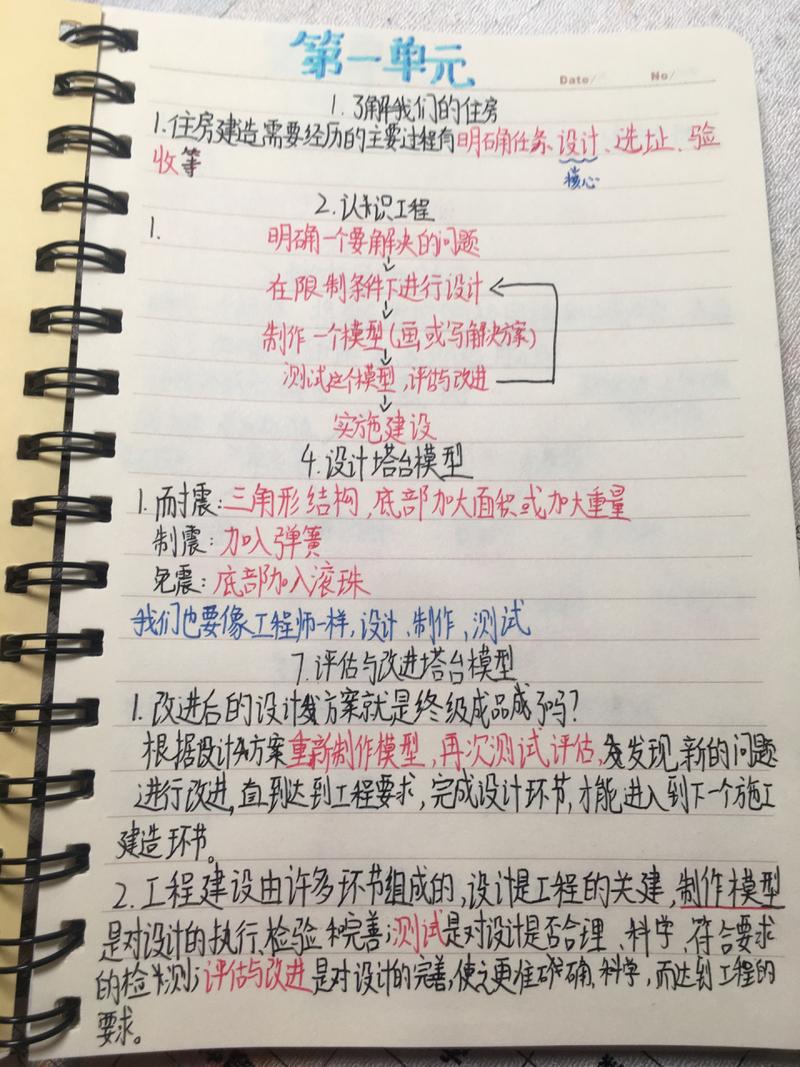 第一单元
Date/ No/
1.了解我们的住房
1.住房建造需要经历的主要过程有明确任务、设计、选址、验
收等
核心
2.认识工程
1.
明确一个要解决的问题
在限制条件下进行设计
制作一个模型(画或写解决方案)
测试这个模型,评估与改进
实施建设
4.设计塔台模型
1.耐震:三角形结构,底部加大面积或加大重量
制震:加入弹簧
免震:底部加入滚珠
我们也要像工程师一样,设计、制作,测试
7.评估与改进塔台模型
1.改进后的设计方案就是终级成品成了吗?
根据设计方案重新制作模型,再次测试评估,发现新的问题
进行改进,直到达到工程要求,完成设计环节,才能进入到下一个施工
建造环节。
2.工程建设由许多环节组成的,设计是工程的关建,制作模型
是对设计的执行、检验和完善;测试是对设计是否合理、科学、符合要求
的检测;评估与改进是对设计的完善,使之更准确、科学,而达到工程的
要求。